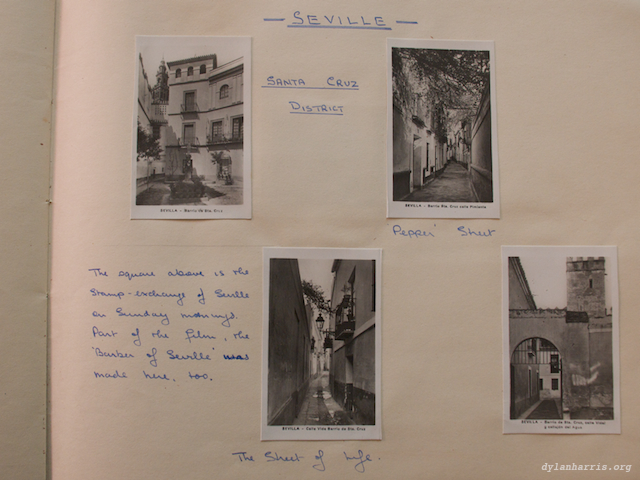 — SEVILLE —
SANTA CRUZ
DISTRICT
SEVILLA - Barrio de Sta. Cruz
SEVILLA - Barrio Sta. Cruz calle Pimienta
'Pepper' Street
The square above is the
stamp-exchange of Seville
on Sunday mornings.
Part of the film, the
'Barber of Seville' was
made here, too.
SEVILLA - Calle Vida Barrio de Sta. Cruz
SEVILLA - Barrio de Sta. Cruz, calle Vida
y callejón del Agua
The Street of Life.
dylanharris.org